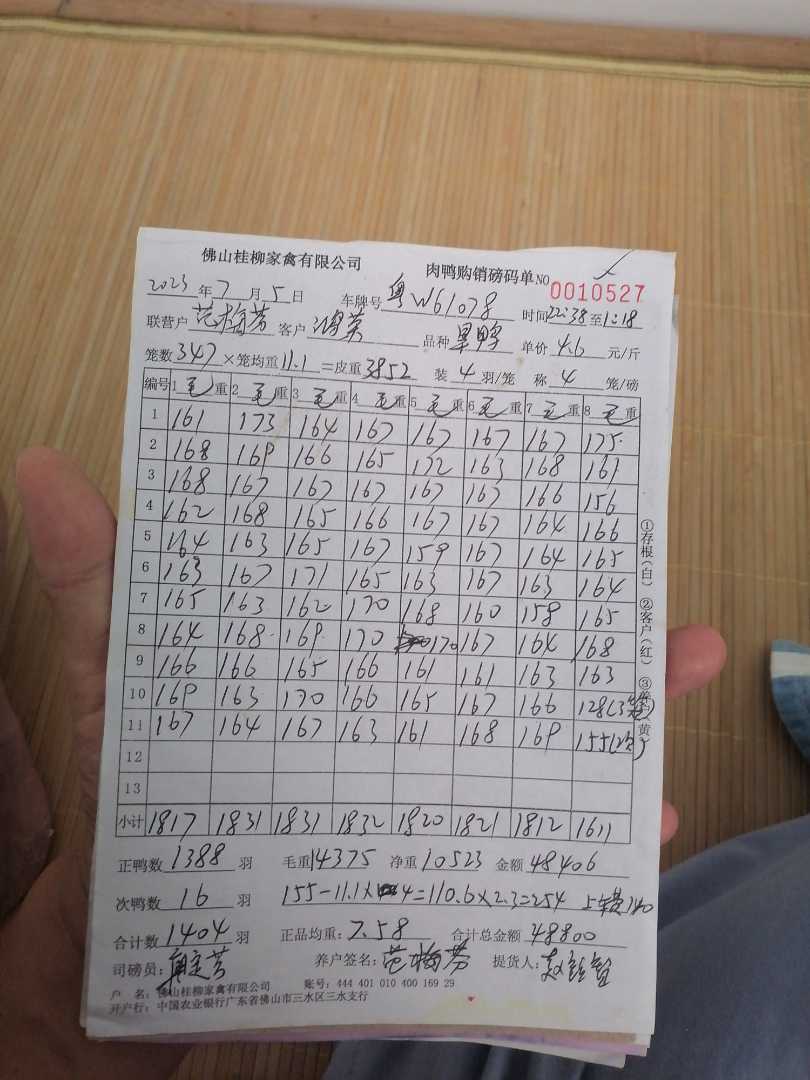 佛山桂柳家禽有限公司 肉鸭购销磅码单 NO 0010527
2023 年 7 月 5 日 车牌号 粤W61078 时间 22:38 至 1:18
联营户 范梅芬 客户 鸿英 品种 单价 4.6 元/斤
笼数 347 ×笼均重 11.1 =皮重 3852 装 4 羽/笼 称 4 笼/磅
编号 1 毛重 2 毛重 3 毛重 4 毛重 5 毛重 6 毛重 7 毛重 8 毛重
1 161 173 164 167 167 167 167 175
2 168 169 166 165 172 163 168 161
3 168 167 167 167 167 167 166 156
4 162 168 165 166 167 167 164 166
5 164 163 165 167 159 167 164 165
6 163 167 171 165 163 167 163 164
7 165 163 162 170 168 160 158 165
8 164 168 169 170 170 167 164 168
9 166 166 165 166 161 161 163 163
10 169 163 170 166 165 167 166 128(3笼)
11 167 164 167 163 161 168 169 155(次)
12
13
小计 1817 1831 1831 1832 1820 1821 1812 1611
正鸭数 1388 羽 毛重 14375 净重 10523 金额 48406
次鸭数 16 羽 155-11.1×4=110.6×2.3=254 140
合计数 1404 羽 正品均重: 7.58 合计总金额 48800
司磅员: 养户签名: 范梅芬 提货人:
户 名: 佛山桂柳家禽有限公司 账号: 444 401 010 400 169 29
开户行: 中国农业银行广东省佛山市三水区三水支行
①存根(白) ②客户(红) ③ (黄)